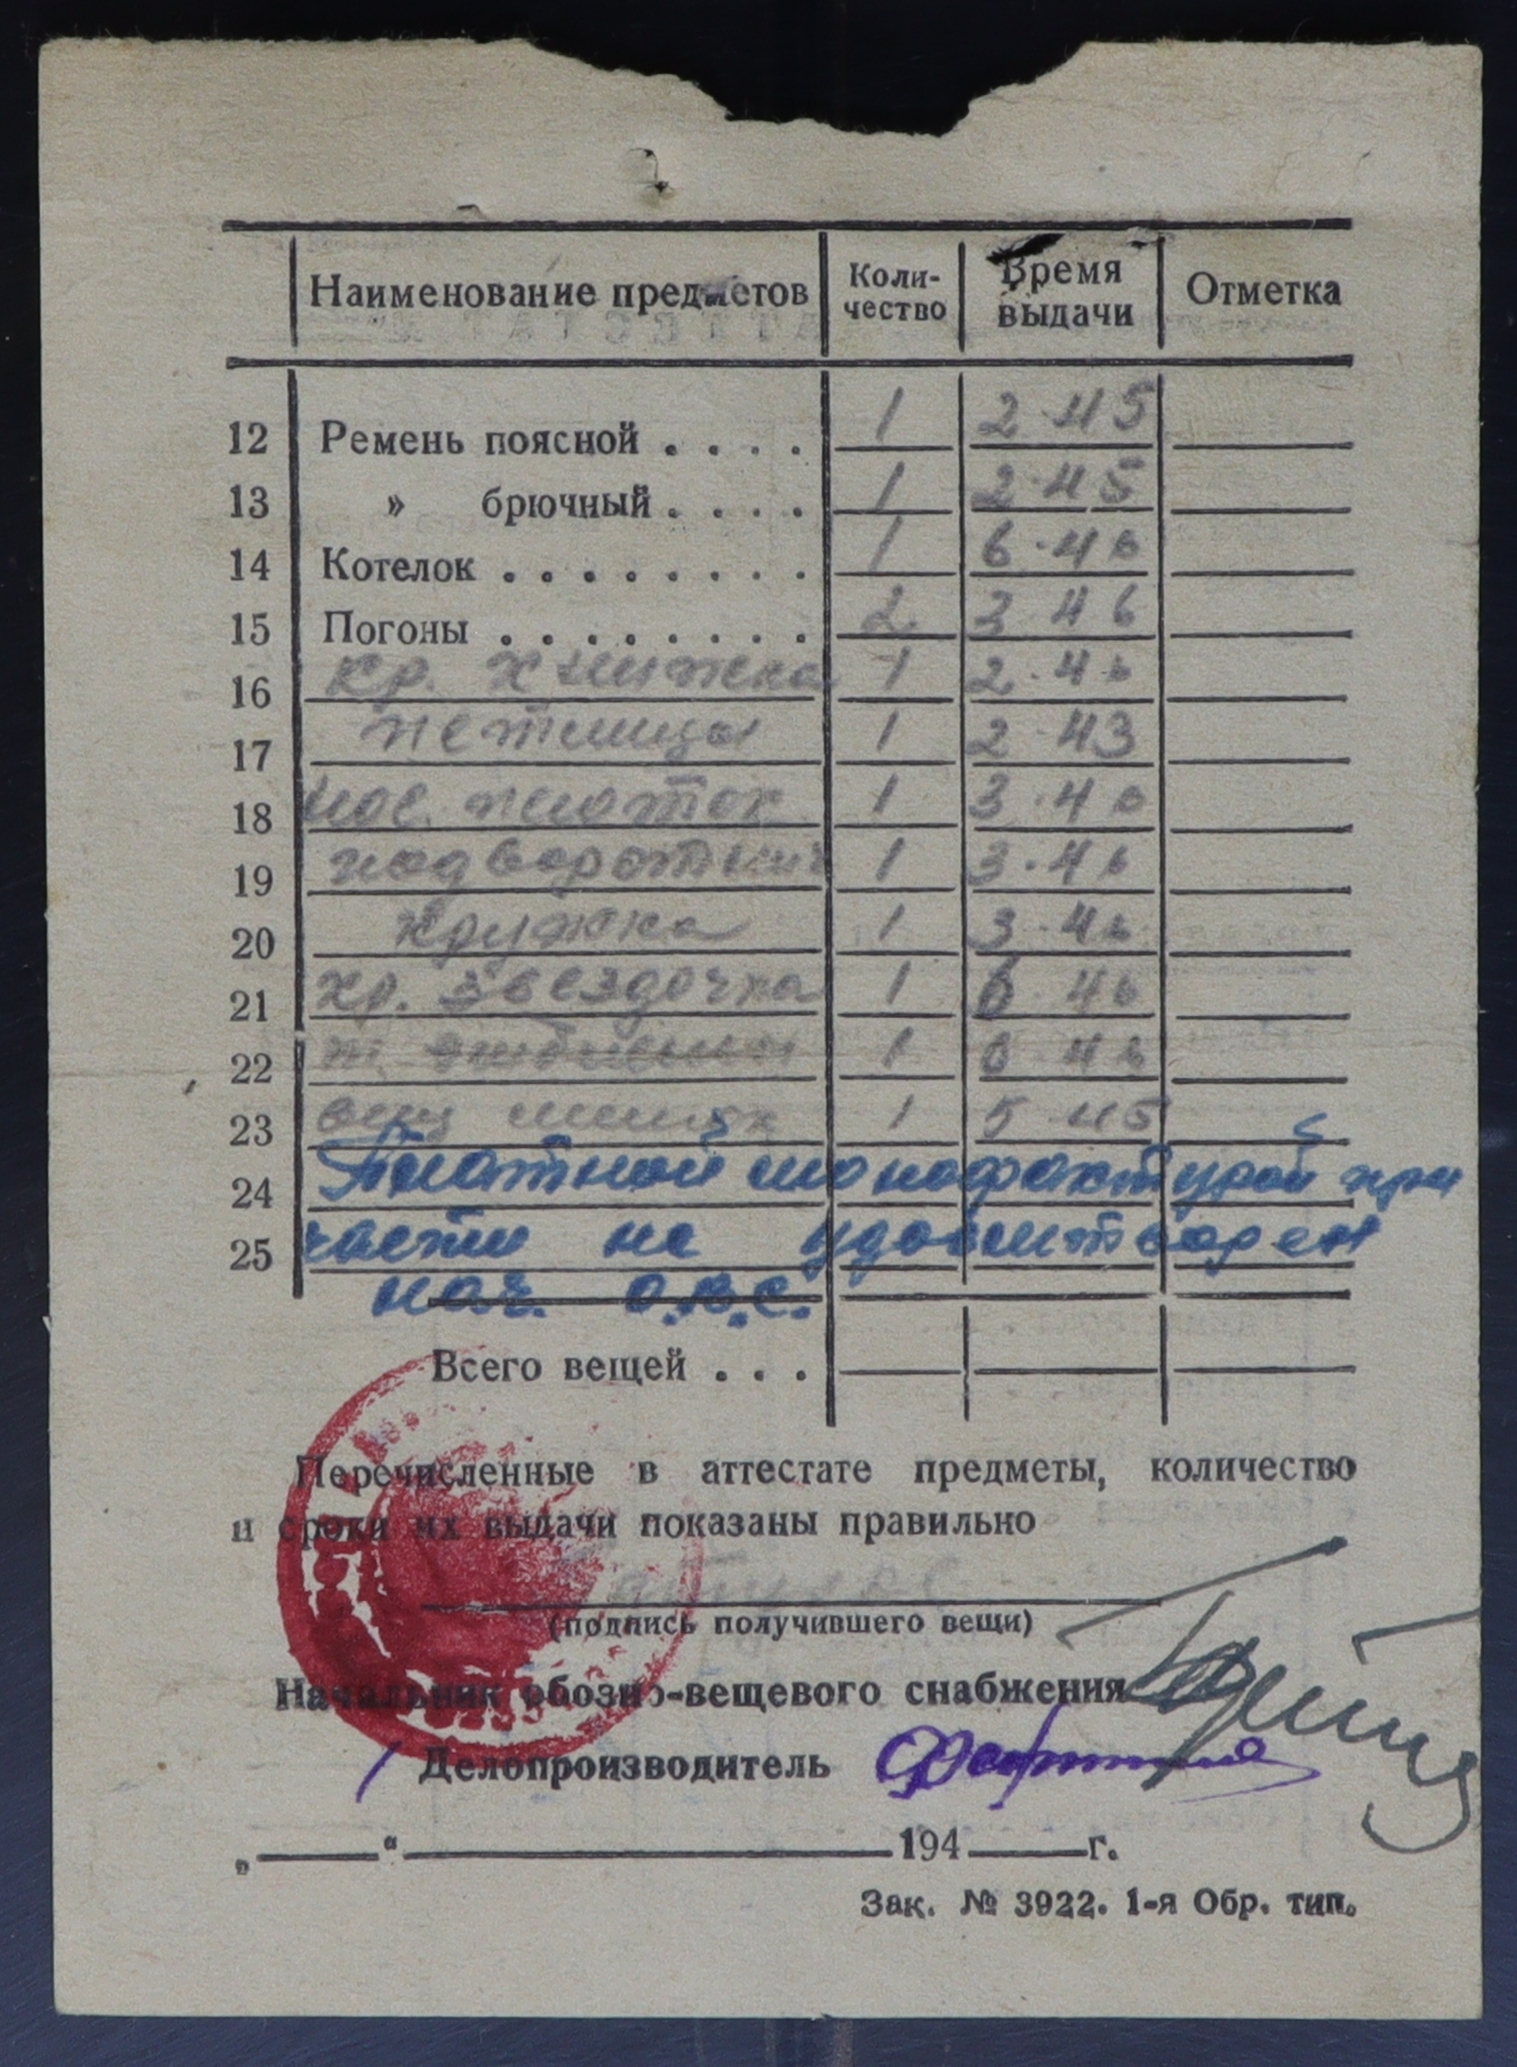 Наименование предметов Коли-чество Время выдачи Отметка
12 Ремень поясной . . . . 1 2·45
13 » брючный . . . . 1 2·45
14 Котелок . . . . . . . . 1 6·46
15 Погоны . . . . . . . . 2 3 46
16 кр. книжка 1 2·46
17 петлицы 1 2·43
18 нос. платок 1 3·46
19 подворотнич 1 3·46
20 кружка 1 3·46
21 кр. звездочка 1 6·46
22 1 6 46
23 вещ мешок 1 5 45
24 Платной манофактурой при
25 части не удовлтворен
нач. О.В.С.
Всего вещей . . .
Перечисленные в аттестате предметы, количество
и сроки их выдачи показаны правильно
(подпись получившего вещи)
Начальник обозно-вещевого снабжения
Делопроизводитель
„ “ 194 г.
Зак. № 3922. 1-я Обр. тип.